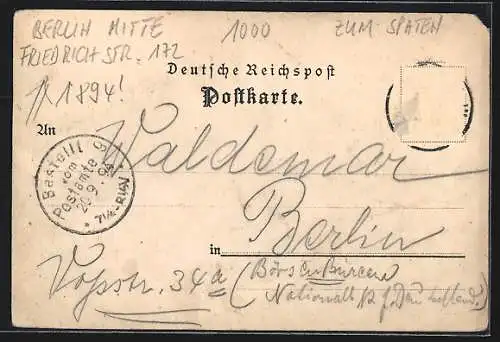 BERLIN MITTE 1000 ZUM SPATEN
FRIEDRICHSTR. 172
1894!
Deutsche Reichspost
Postkarte.
An
Waldemar
Bestellt
vom
Postamte 9
20.9.94
Berlin
in
Vossstr. 34a